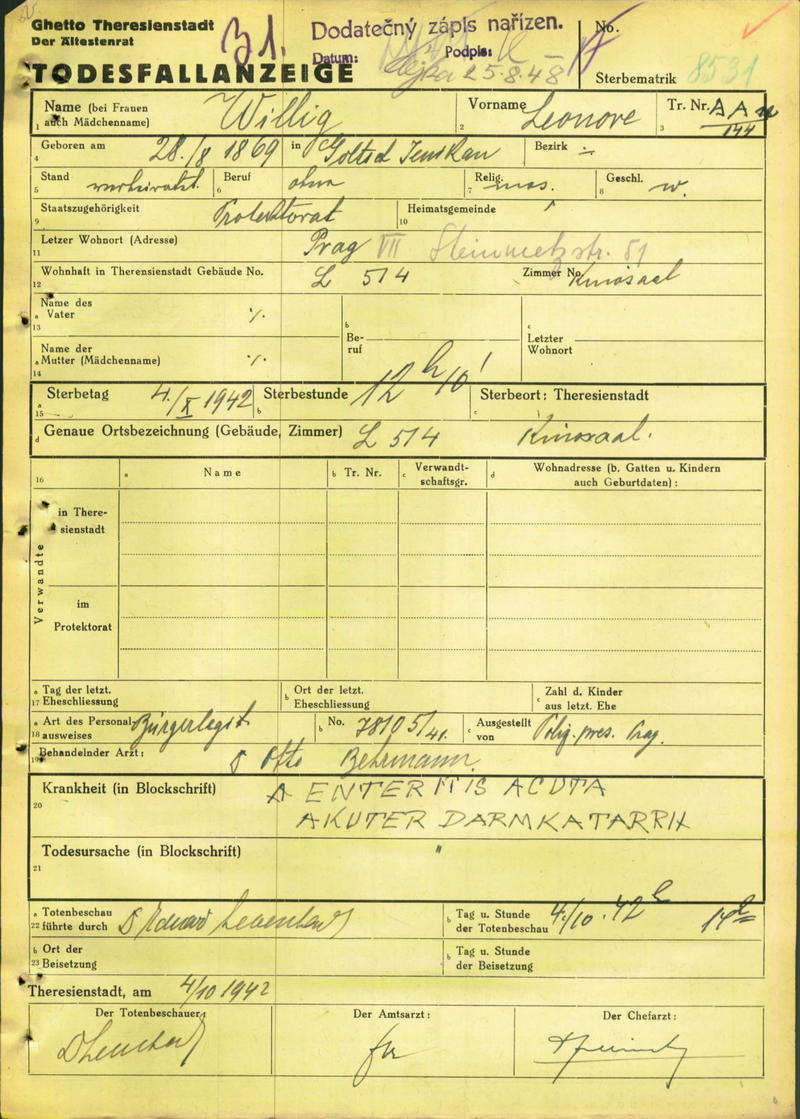 Ghetto Theresienstadt
Der Ältestenrat
31.
Dodatečný zápis nařízen.
Datum: 25.8.48 Podpis:
No.
TODESFALLANZEIGE
Sterbematrik 8531
Name (bei Frauen auch Mädchenname) Willig
1
Vorname Leonore
2
Tr. Nr. AAu
3 144
Geboren am 28./8 1869 in Goltsch Jenikau Bezirk
4
Stand verheiratet Beruf ohne Relig. mos. Geschl. w.
5 6 7 8
Staatszugehörigkeit Protektorat Heimatsgemeinde
9 10
Letzer Wohnort (Adresse) Prag VII Steinmetzstr. 51
11
Wohnhaft in Therensienstadt Gebäude No. L 514 Zimmer No. Kinosaal
12
Name des
a Vater ./. b c
13
Beruf Letzter Wohnort
Name der
a Mutter (Mädchenname) ./.
14
Sterbetag 4./X 1942 Sterbestunde 12 h 10' Sterbeort: Theresienstadt
a 15 b c
d Genaue Ortsbezeichnung (Gebäude, Zimmer) L 514 Kinosaal.
16 a Name b Tr. Nr. c Verwandtschaftsgr. d Wohnadresse (b. Gatten u. Kindern auch Geburtdaten):
Verwandte
in Theresienstadt
im Protektorat
a Tag der letzt. b Ort der letzt. Zahl d. Kinder
17 Eheschliessung Eheschliessung c aus letzt. Ehe
a Art des Personal- Bürgerlegit. b No. 78105/41. c Ausgestellt
18 ausweises von Poliz. pres. Prag.
Behandelnder Arzt: D Otto Behrmann
19
Krankheit (in Blockschrift) A ENTERITIS ACUTA
20
AKUTER DARMKATARRH
Todesursache (in Blockschrift) "
21
a Totenbeschau b Tag u. Stunde 4./10. 42 h 14 h
22 führte durch D Eduard der Totenbeschau
b Ort der b Tag u. Stunde
23 Beisetzung der Beisetzung
Theresienstadt, am 4/10 1942
Der Totenbeschauer: Der Amtsarzt: Der Chefarzt: